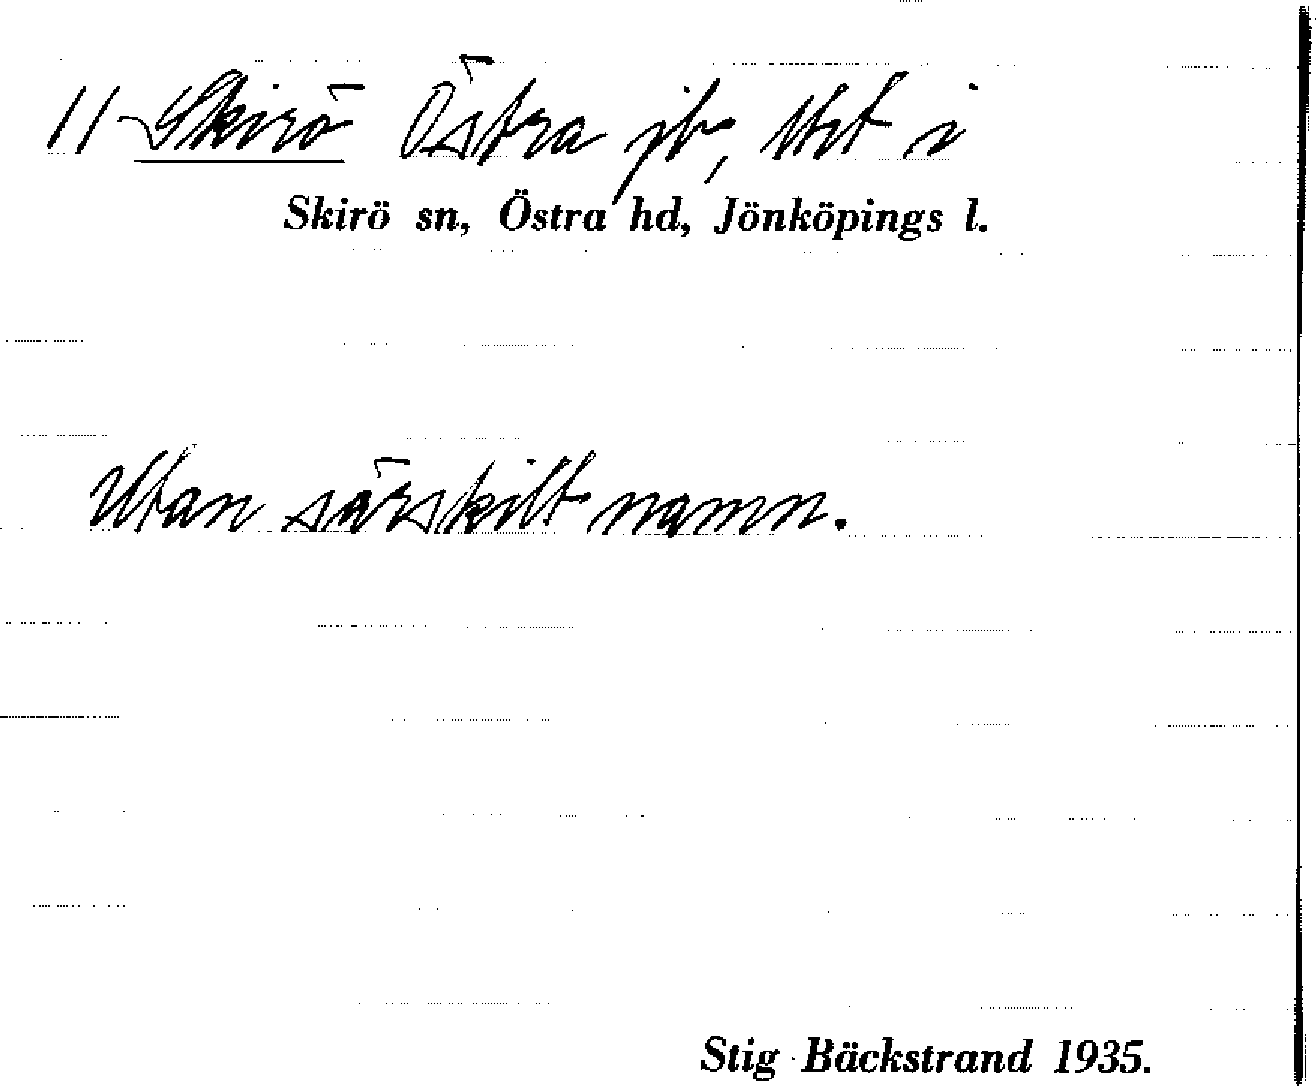 11 Skirö Östra jb, tht i
Skirö sn, Östra hd, Jönköpings l.
Utan särskilt namn.
Stig Bäckstrand 1935.